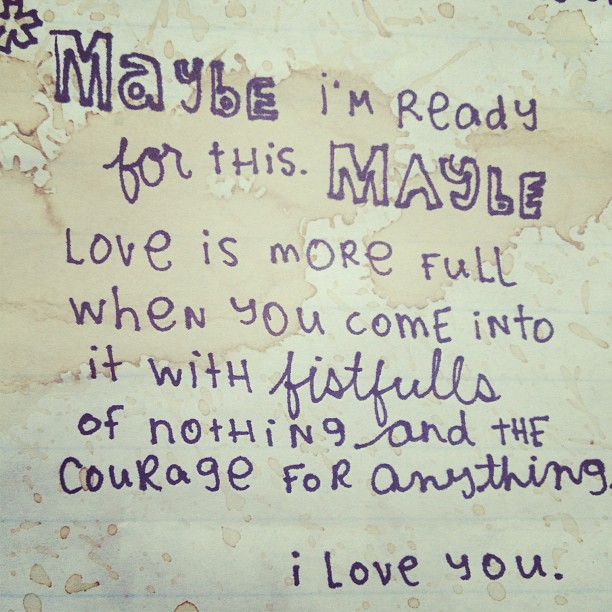 Maybe i'm Ready
for this. MAYbE
Love is more full
when you come into
it with fistfulls
of nothing and the
courage for anything.
i love you.